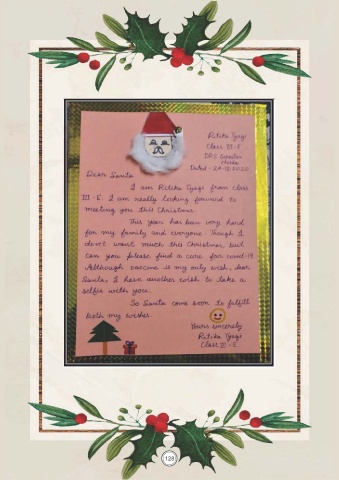 Ritika Tyagi
Class III-E
DPS Greater
Noida
Dated - 24-12-2020
Dear Santa
I am Ritika Tyagi from class
III-E. I am really looking forward to
meeting you this Christmas.
This year has been very hard
for my family and everyone. Though I
don't want much this Christmas, but
can you please find a cure for covid-19
Although vaccine is my only wish, dear
Santa, I have another wish to take a
selfie with you.
So Santa come soon to fulfill
both my wishes.
Yours sincerely
Ritika Tyagi
Class III-E
128